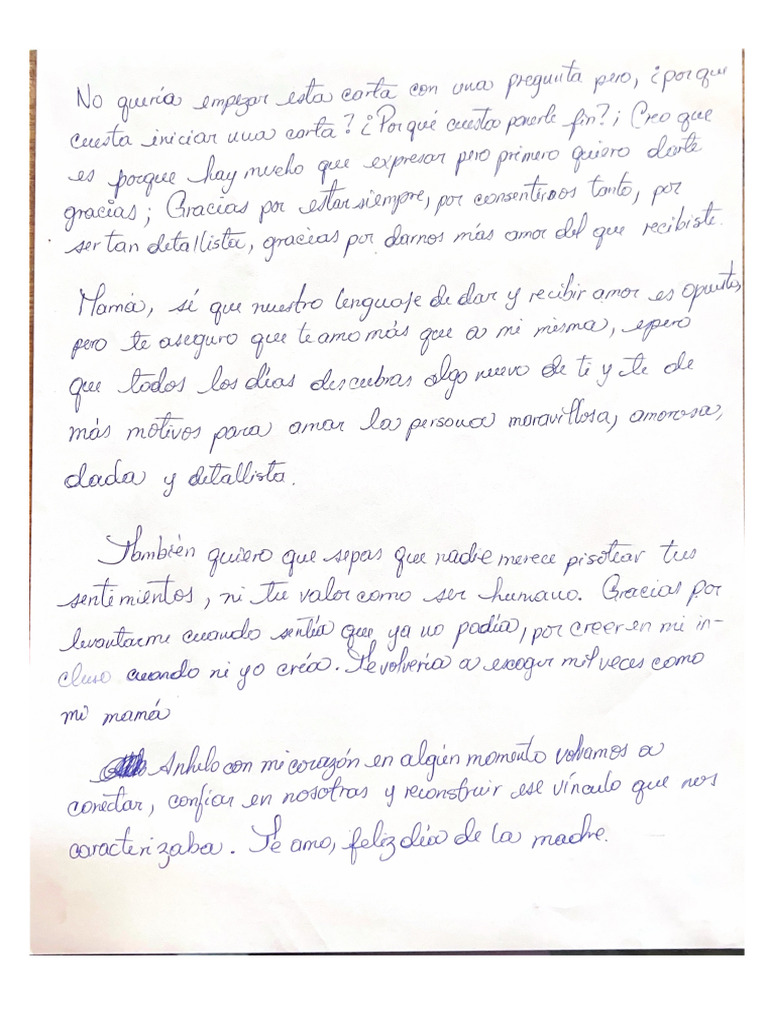 No quería empezar esta carta con una pregunta pero, ¿porque
cuesta iniciar una carta? ¿Por qué cuesta ponerle fin? ¡ Creo que
es porque hay mucho que expresar pero primero quiero darte
gracias; Gracias por estar siempre, por consentirnos tanto, por
ser tan detallista, gracias por darnos más amor del que recibiste.
Mamá, sé que nuestro lenguaje de dar y recibir amor es opuesto,
pero te aseguro que te amo más que a mi misma, epero
que todos los días descubras algo nuevo de ti y te de
más motivos para amar la persona maravillosa, amorosa,
dada y detallista.
También quiero que sepas que nadie merece pisotear tus
sentimientos, ni tu valor como ser humano. Gracias por
levantarme cuando sentía que ya no podía, por creer en mi in-
cluso cuando ni yo creía. Te volvería a escoger mil veces como
mi mamá
Anhelo con mi corazón en algún momento volvamos a
conectar, confiar en nosotras y reconstruir ese vínculo que nos
caracterizaba. Te amo, feliz día de la madre.